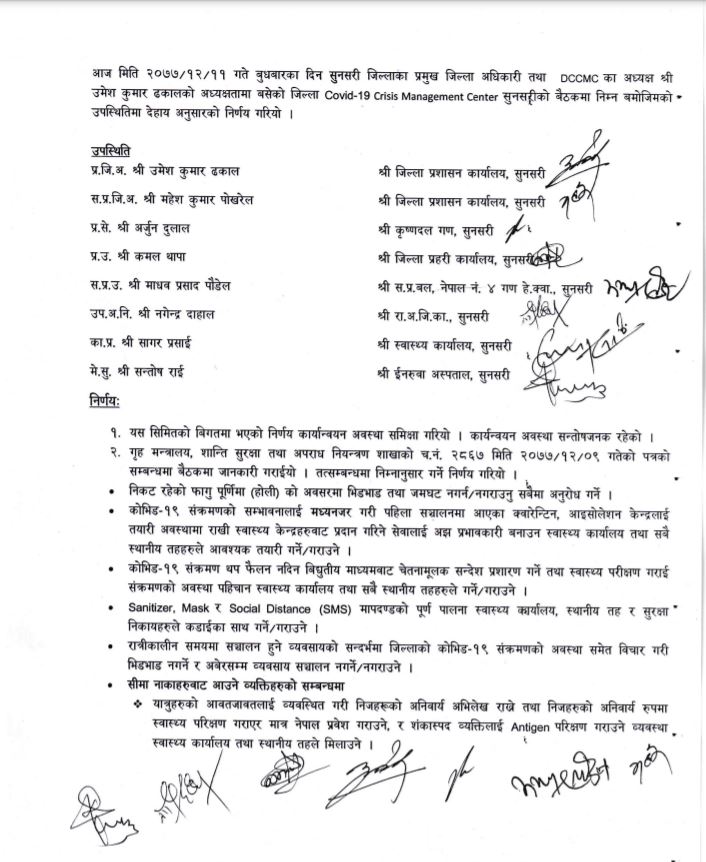 आज मिति २०७७/१२/११ गते बुधबारका दिन सुनसरी जिल्लाका प्रमुख जिल्ला अधिकारी तथा DCCMC का अध्यक्ष श्री
उमेश कुमार ढकालको अध्यक्षतामा बसेको जिल्ला Covid-19 Crisis Management Center सुनसरीको बैठकमा निम्न बमोजिमको
उपस्थितिमा देहाय अनुसारको निर्णय गरियो ।
उपस्थिति
प्र.जि.अ. श्री उमेश कुमार ढकाल श्री जिल्ला प्रशासन कार्यालय, सुनसरी
स.प्र.जि.अ. श्री महेश कुमार पोखरेल श्री जिल्ला प्रशासन कार्यालय, सुनसरी
प्र.से. श्री अर्जुन दुलाल श्री कृष्णदल गण, सुनसरी
प्र.उ. श्री कमल थापा श्री जिल्ला प्रहरी कार्यालय, सुनसरी
स.प्र.उ. श्री माधव प्रसाद पौडेल श्री स.प्र.बल, नेपाल नं. ४ गण हे.क्वा., सुनसरी
उप.अ.नि. श्री नगेन्द्र दाहाल श्री रा.अ.जि.का., सुनसरी
का.प्र. श्री सागर प्रसाई श्री स्वास्थ्य कार्यालय, सुनसरी
मे.सु. श्री सन्तोष राई श्री ईनरुवा अस्पताल, सुनसरी
निर्णयः
१. यस सिमितको बिगतमा भएको निर्णय कार्यान्वयन अवस्था समिक्षा गरियो । कार्यन्वयन अवस्था सन्तोषजनक रहेको ।
२. गृह मन्त्रालय, शान्ति सुरक्षा तथा अपराध नियन्त्रण शाखाको च.नं. २८६७ मिति २०७७/१२/०९ गतेको पत्रको
सम्बन्धमा बैठकमा जानकारी गराईयो । तत्सम्बन्धमा निम्नानुसार गर्ने निर्णय गरियो ।
• निकट रहेको फागु पूर्णिमा (होली) को अवसरमा भिडभाड तथा जमघट नगर्न/नगराउनु सबैमा अनुरोध गर्ने ।
• कोभिड-१९ संक्रमणको सम्भावनालाई मध्यनजर गरी पहिला सञ्चालनमा आएका क्वारेन्टिन, आइसोलेशन केन्द्रलाई
तयारी अवस्थामा राखी स्वास्थ्य केन्द्रहरुबाट प्रदान गरिने सेवालाई अझ प्रभावकारी बनाउन स्वास्थ्य कार्यालय तथा सबै
स्थानीय तहहरुले आवश्यक तयारी गर्ने/गराउने ।
• कोभिड-१९ संक्रमण थप फैलन नदिन बिधुतीय माध्यमवाट चेतनामूलक सन्देश प्रशारण गर्ने तथा स्वास्थ्य परीक्षण गराई
संक्रमणको अवस्था पहिचान स्वास्थ्य कार्यालय तथा सबै स्थानीय तहहरुले गर्ने/गराउने ।
• Sanitizer, Mask र Social Distance (SMS) मापदण्डको पूर्ण पालना स्वास्थ्य कार्यालय, स्थानीय तह र सुरक्षा
निकायहरुले कडाईका साथ गर्ने/गराउने ।
• रात्रीकालीन समयमा सञ्चालन हुने व्यवसायको सन्दर्भमा जिल्लाको कोभिड-१९ संक्रमणको अवस्था समेत विचार गरी
भिडभाड नगर्ने र अबेरसम्म व्यवसाय सञ्चालन नगर्ने/नगराउने ।
• सीमा नाकाहरुबाट आउने व्यक्तिहरुको सम्बन्धमा
❖ यात्रुहरुको आवतजावतलाई व्यवस्थित गरी निजहरूको अनिवार्य अभिलेख राख्ने तथा निजहरुको अनिवार्य रुपमा
स्वास्थ्य परिक्षण गराएर मात्र नेपाल प्रवेश गराउने, र शंकास्पद व्यक्तिलाई Antigen परिक्षण गराउने व्यवस्था
स्वास्थ्य कार्यालय तथा स्थानीय तहले मिलाउने ।